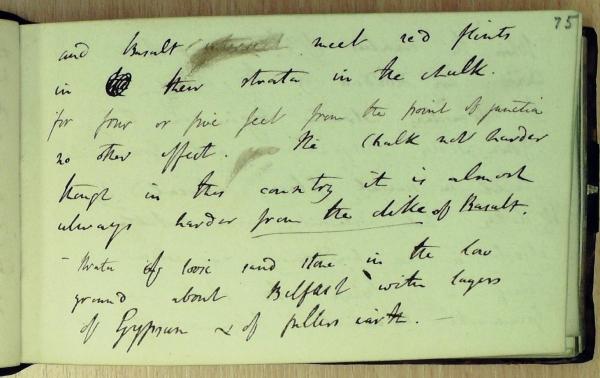 75
and Basalt meet red flints
in their strata in the chalk.
for four or five feet from the point of junction
no other effect. The Chalk not harder
though in this country it is almost
always harder from the dike of Basalt.
- Strata of loose sand stone in the low
ground about Belfast with layers
of Gypsum & of fullers earth. -